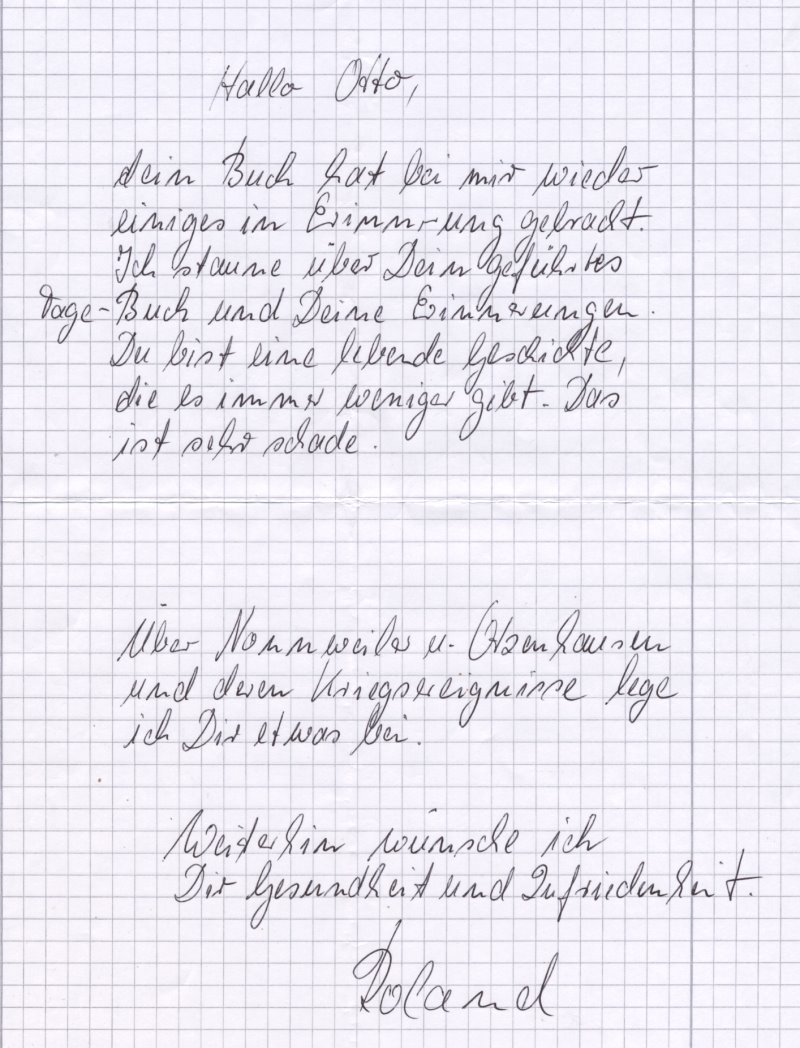 Hallo Otto,
dein Buch hat bei mir wieder
einiges in Erinnrung gebracht.
Ich staune über Dein geführtes
Tage-Buch und Deine Erinnerungen.
Du bist eine lebende Geschichte,
die es immer weniger gibt. Das
ist sehr schade.
Über Nonnweiler u. Otzenhausen
und deren Kriegsereignisse lege
ich Dir etwas bei.
Weiterhin wünsche ich
Dir Gesundheit und Zufriedenheit.
Roland